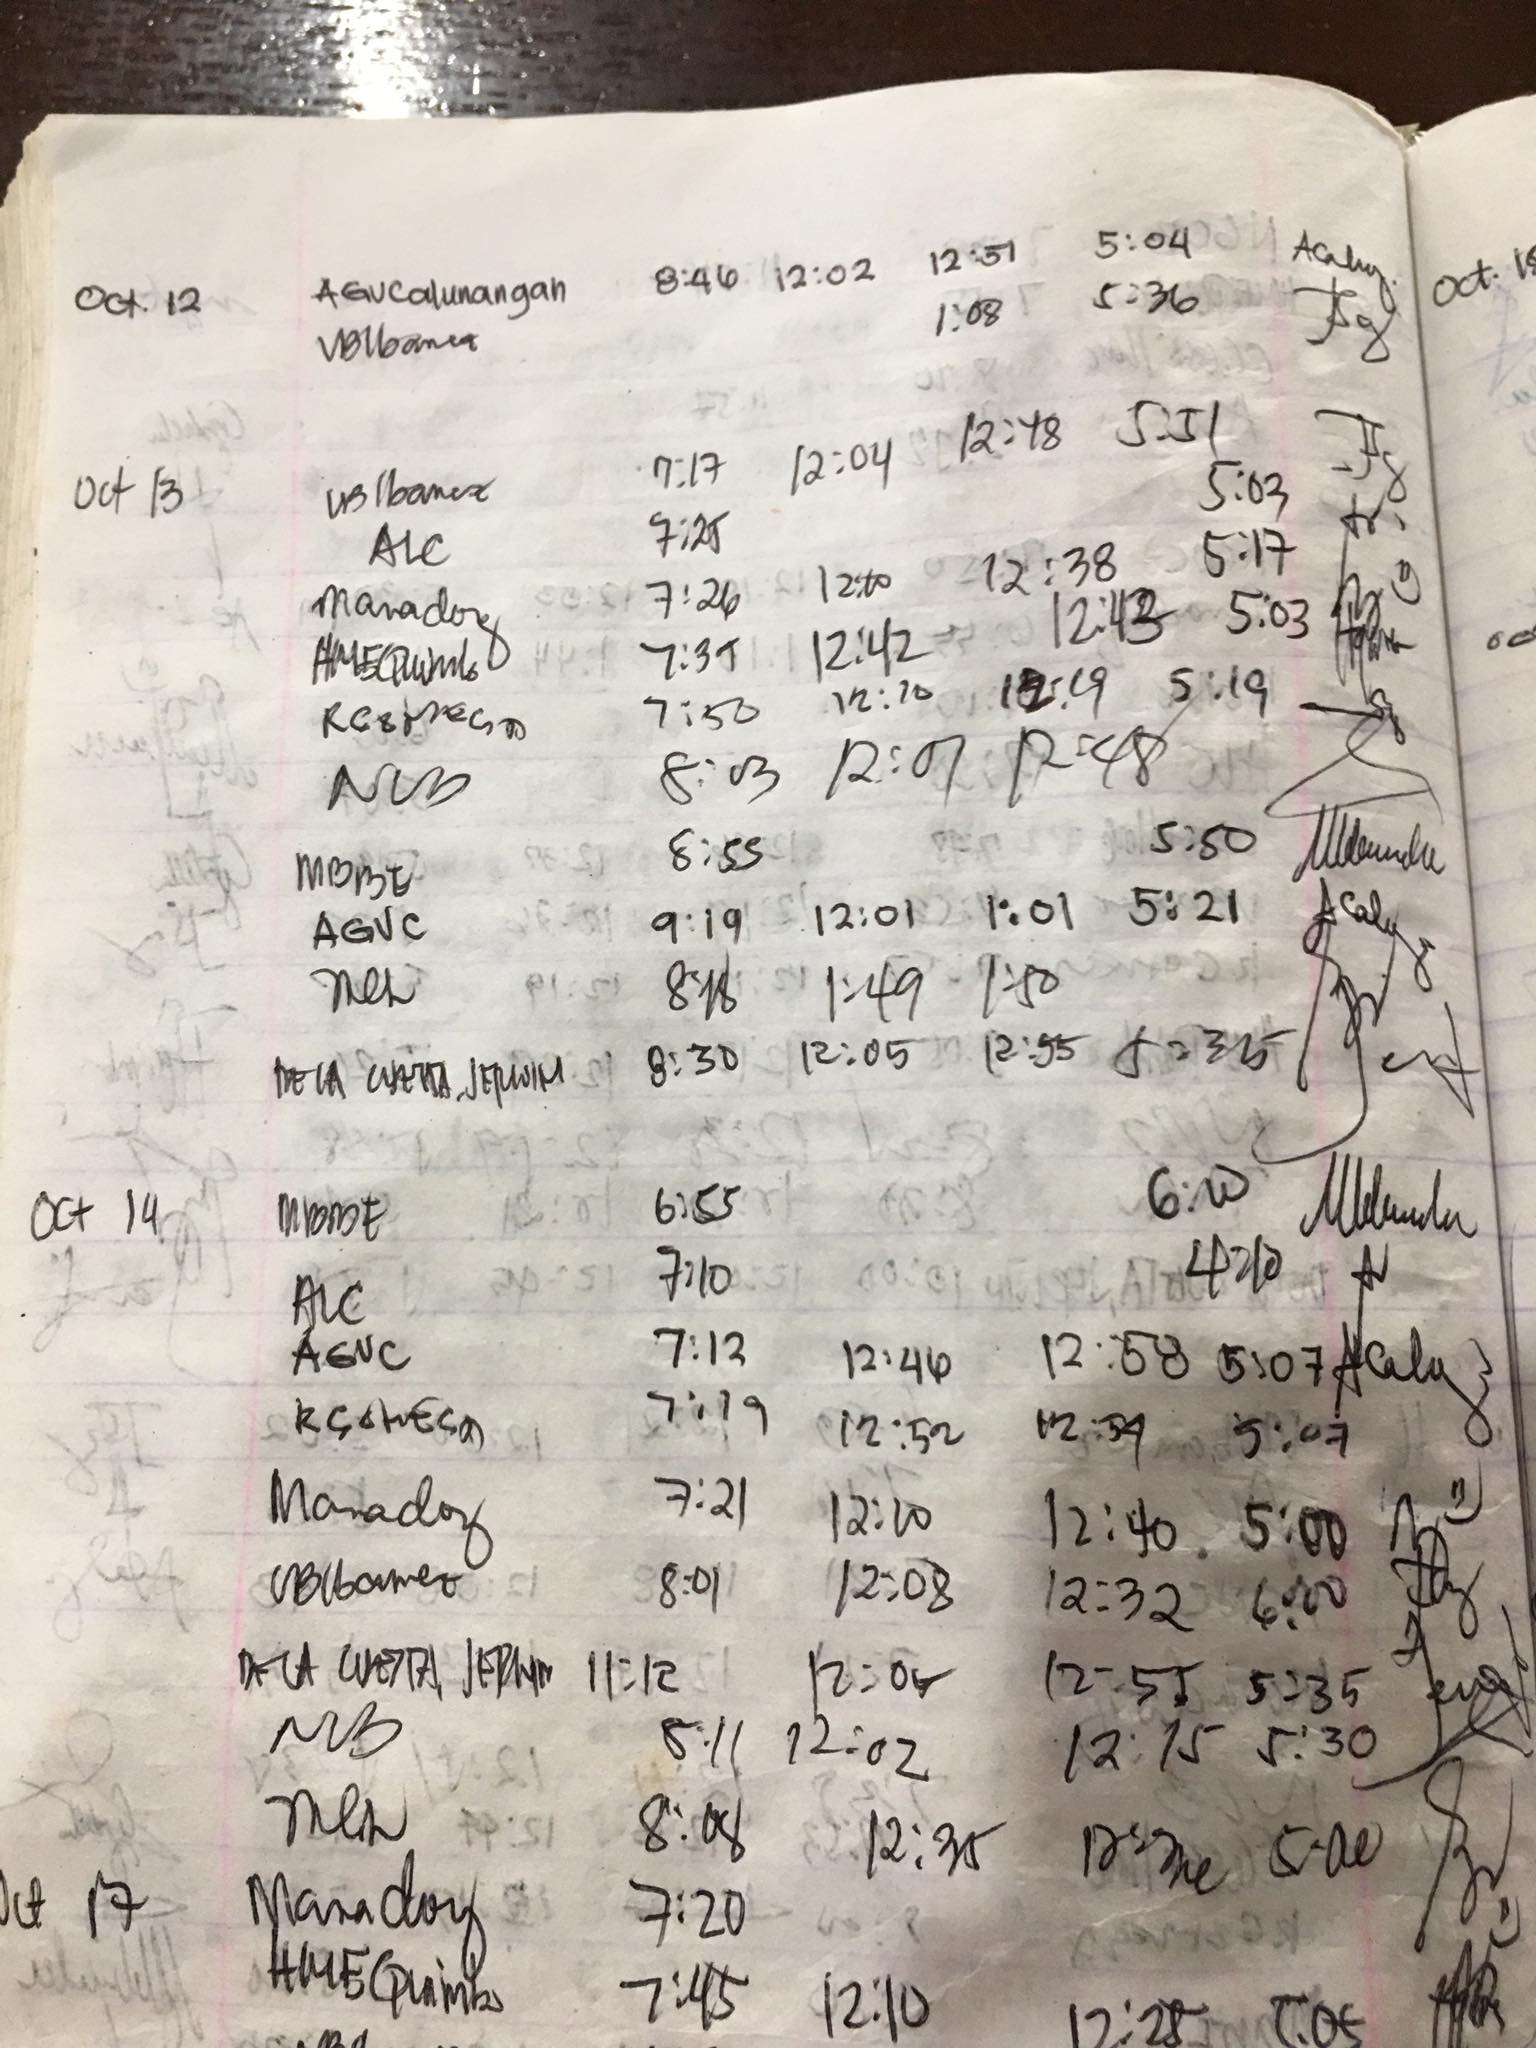 Oct. 12 AGVCalunangan 8:46 12:02 12:51 5:04 Acaly
VBIbanez 1:08 5:36
Oct 13 VBIbanez 7:17 12:04 12:48 5:51
ALC 7:25 5:03
Manadoy 7:26 12:00 12:38 5:17
HMEQuimbo 7:35 12:42 12:43 5:03
7:50 12:10 12:19 5:19
NUB 8:03 12:07 12:48
MBBE 8:55 5:50
AGVC 9:19 12:01 1:01 5:21 Acaly
8:18 1:49 1:50
DELA CUETTA, JERWIN 8:30 12:05 12:55
Oct 14 MBBE 6:55 6:10
ALC 7:10 4:10
AGVC 7:12 12:46 12:58 5:07 Acaly
7:19 12:52 12:59 5:07
Manadoy 7:21 12:10 12:40 5:00
VBIbanez 8:01 12:08 12:32 6:00
DELA CUETTA, JERWIN 11:12 12:05 12:55 5:35
NUB 8:11 12:02 12:15 5:30
8:08 12:35 5:00
Oct 17 Manadoy 7:20
HMEQuimbo 7:45 12:10 12:25 5:05